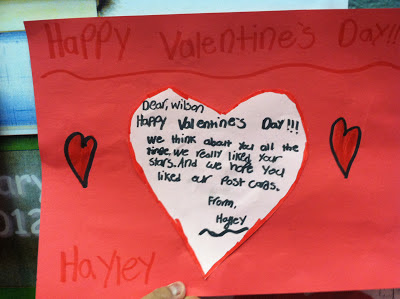 Happy Valentine's Day!!!
Dear, Wilson
Happy Valentine's Day!!!
We think about you all the
time. we really liked your
stars. And we hope you
liked our Post cards.
From,
Hayley
Hayley
ary
2012